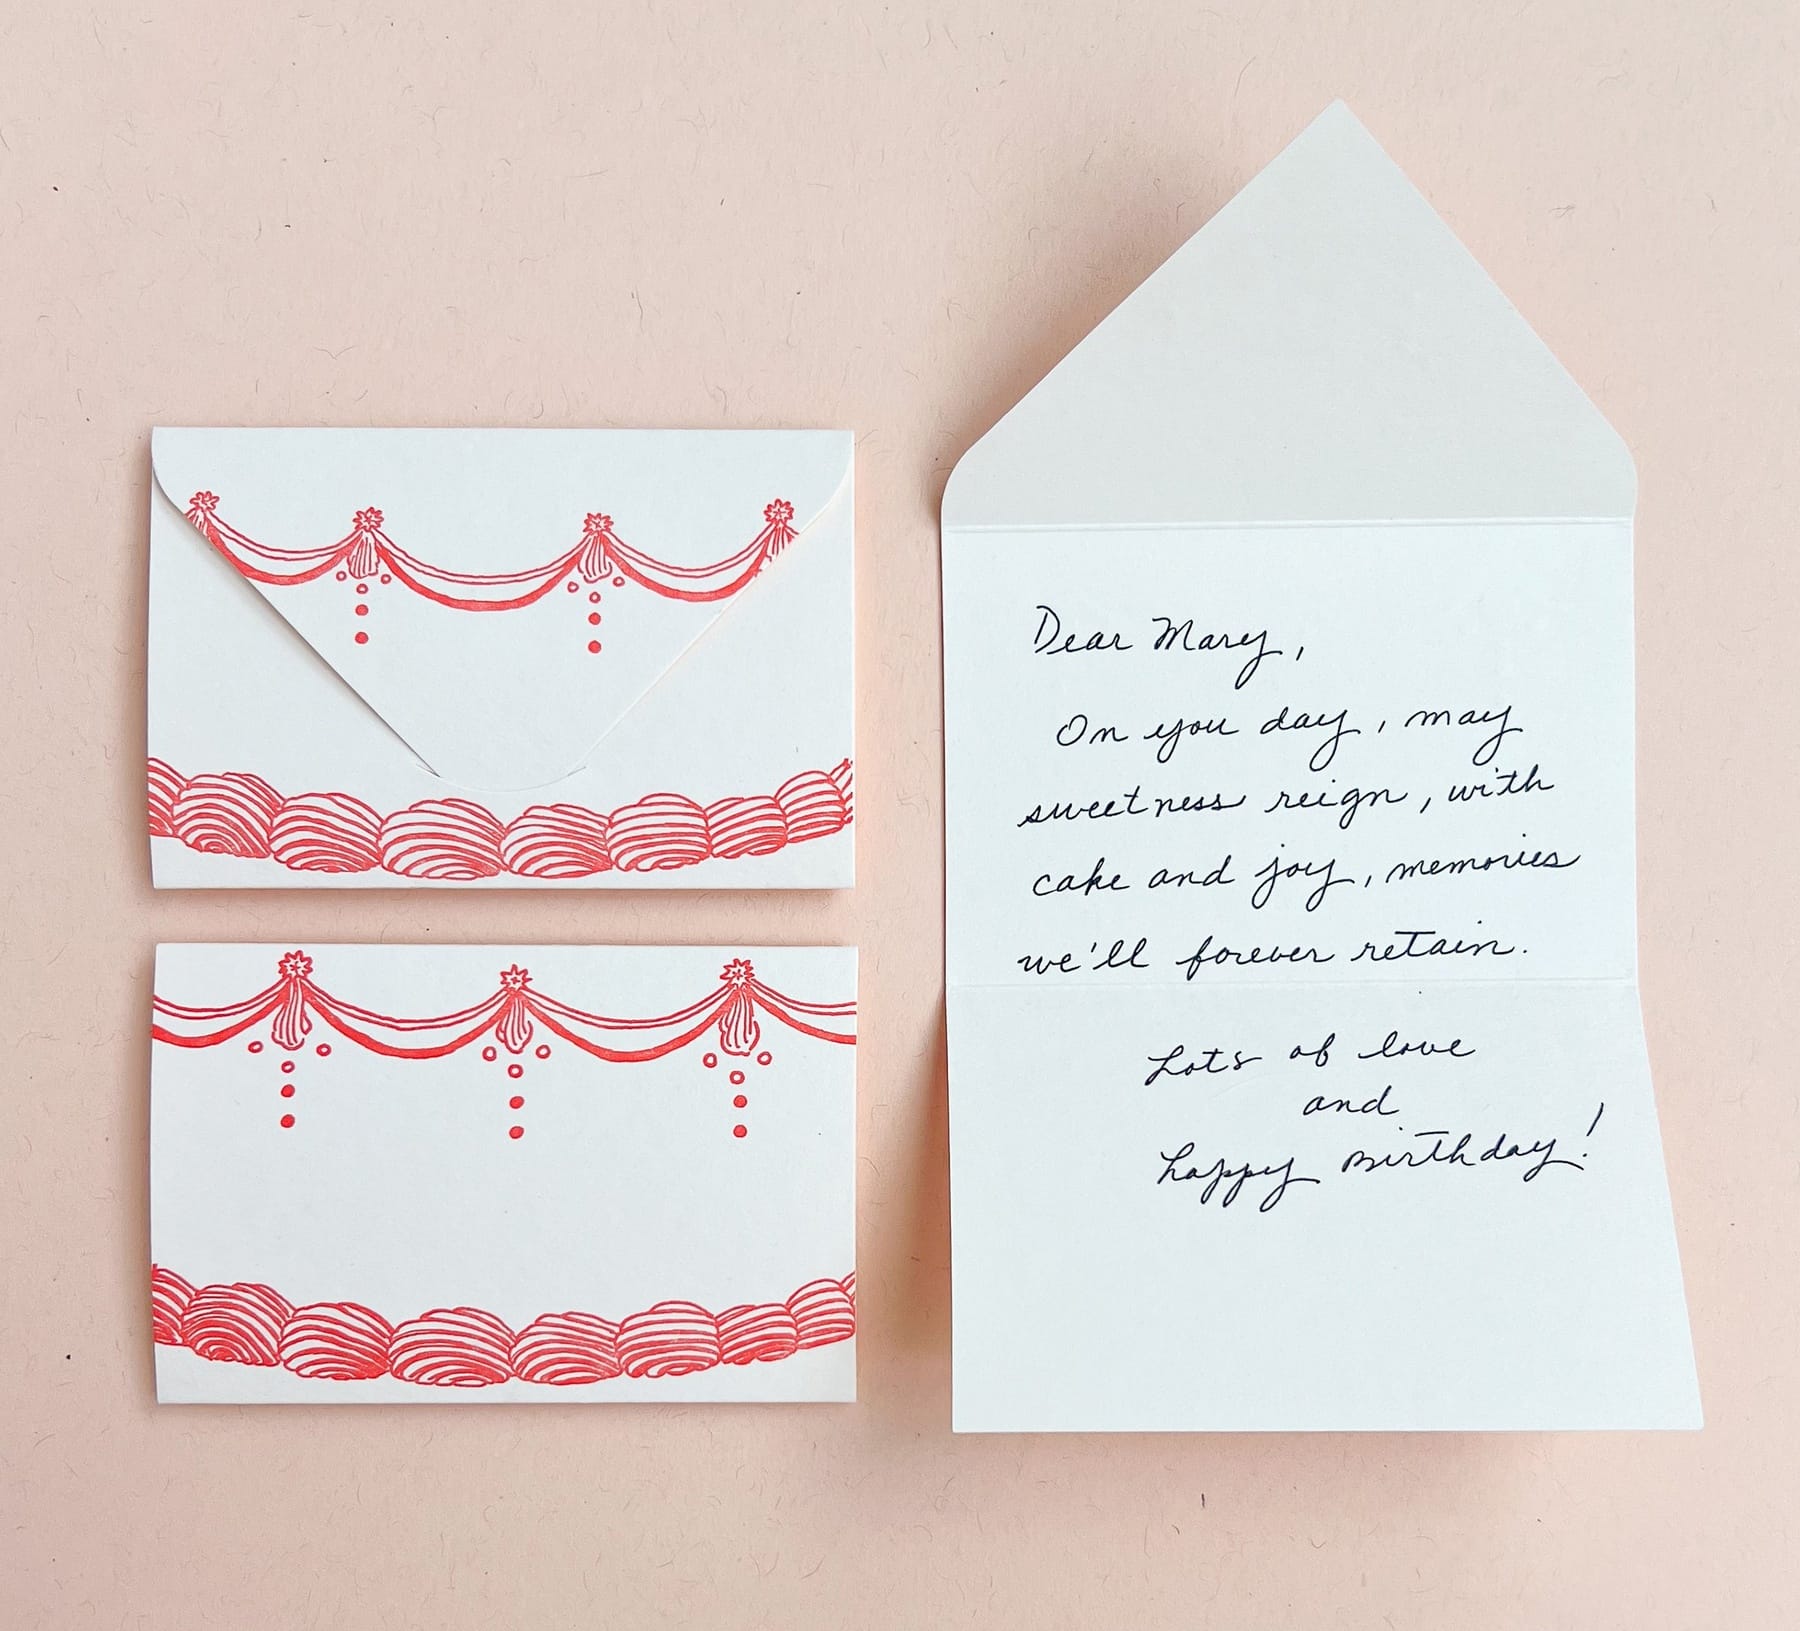 Dear Mary,
On you day, may
sweetness reign, with
cake and joy, memories
we'll forever retain.
Lots of love
and
happy Birthday!